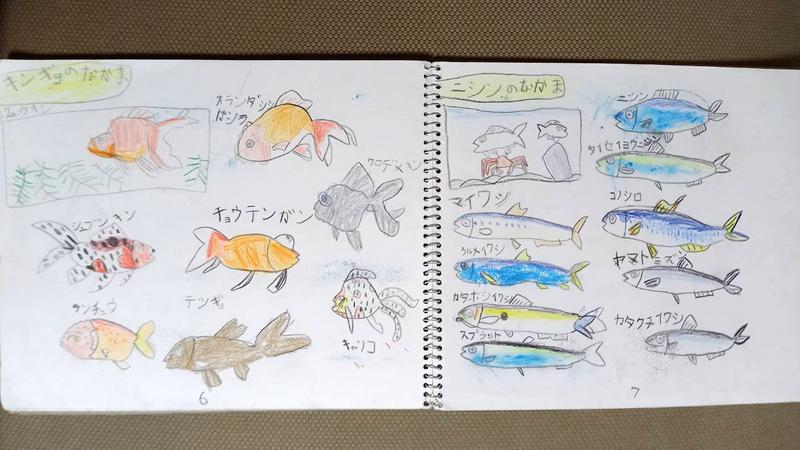 キンギョのなかま
オランダシシ
ガシラ
クロデメキン
シュブンキン
チョウテンガン
ランチュウ
テツギョ
キャリコ
6
ニシンのなかま
ニシン
タイセイヨウニシン
マイワシ
コノシロ
ウルメイワシ
ヤマトミズン
カタボシイワシ
カタクチイワシ
スプラット
7